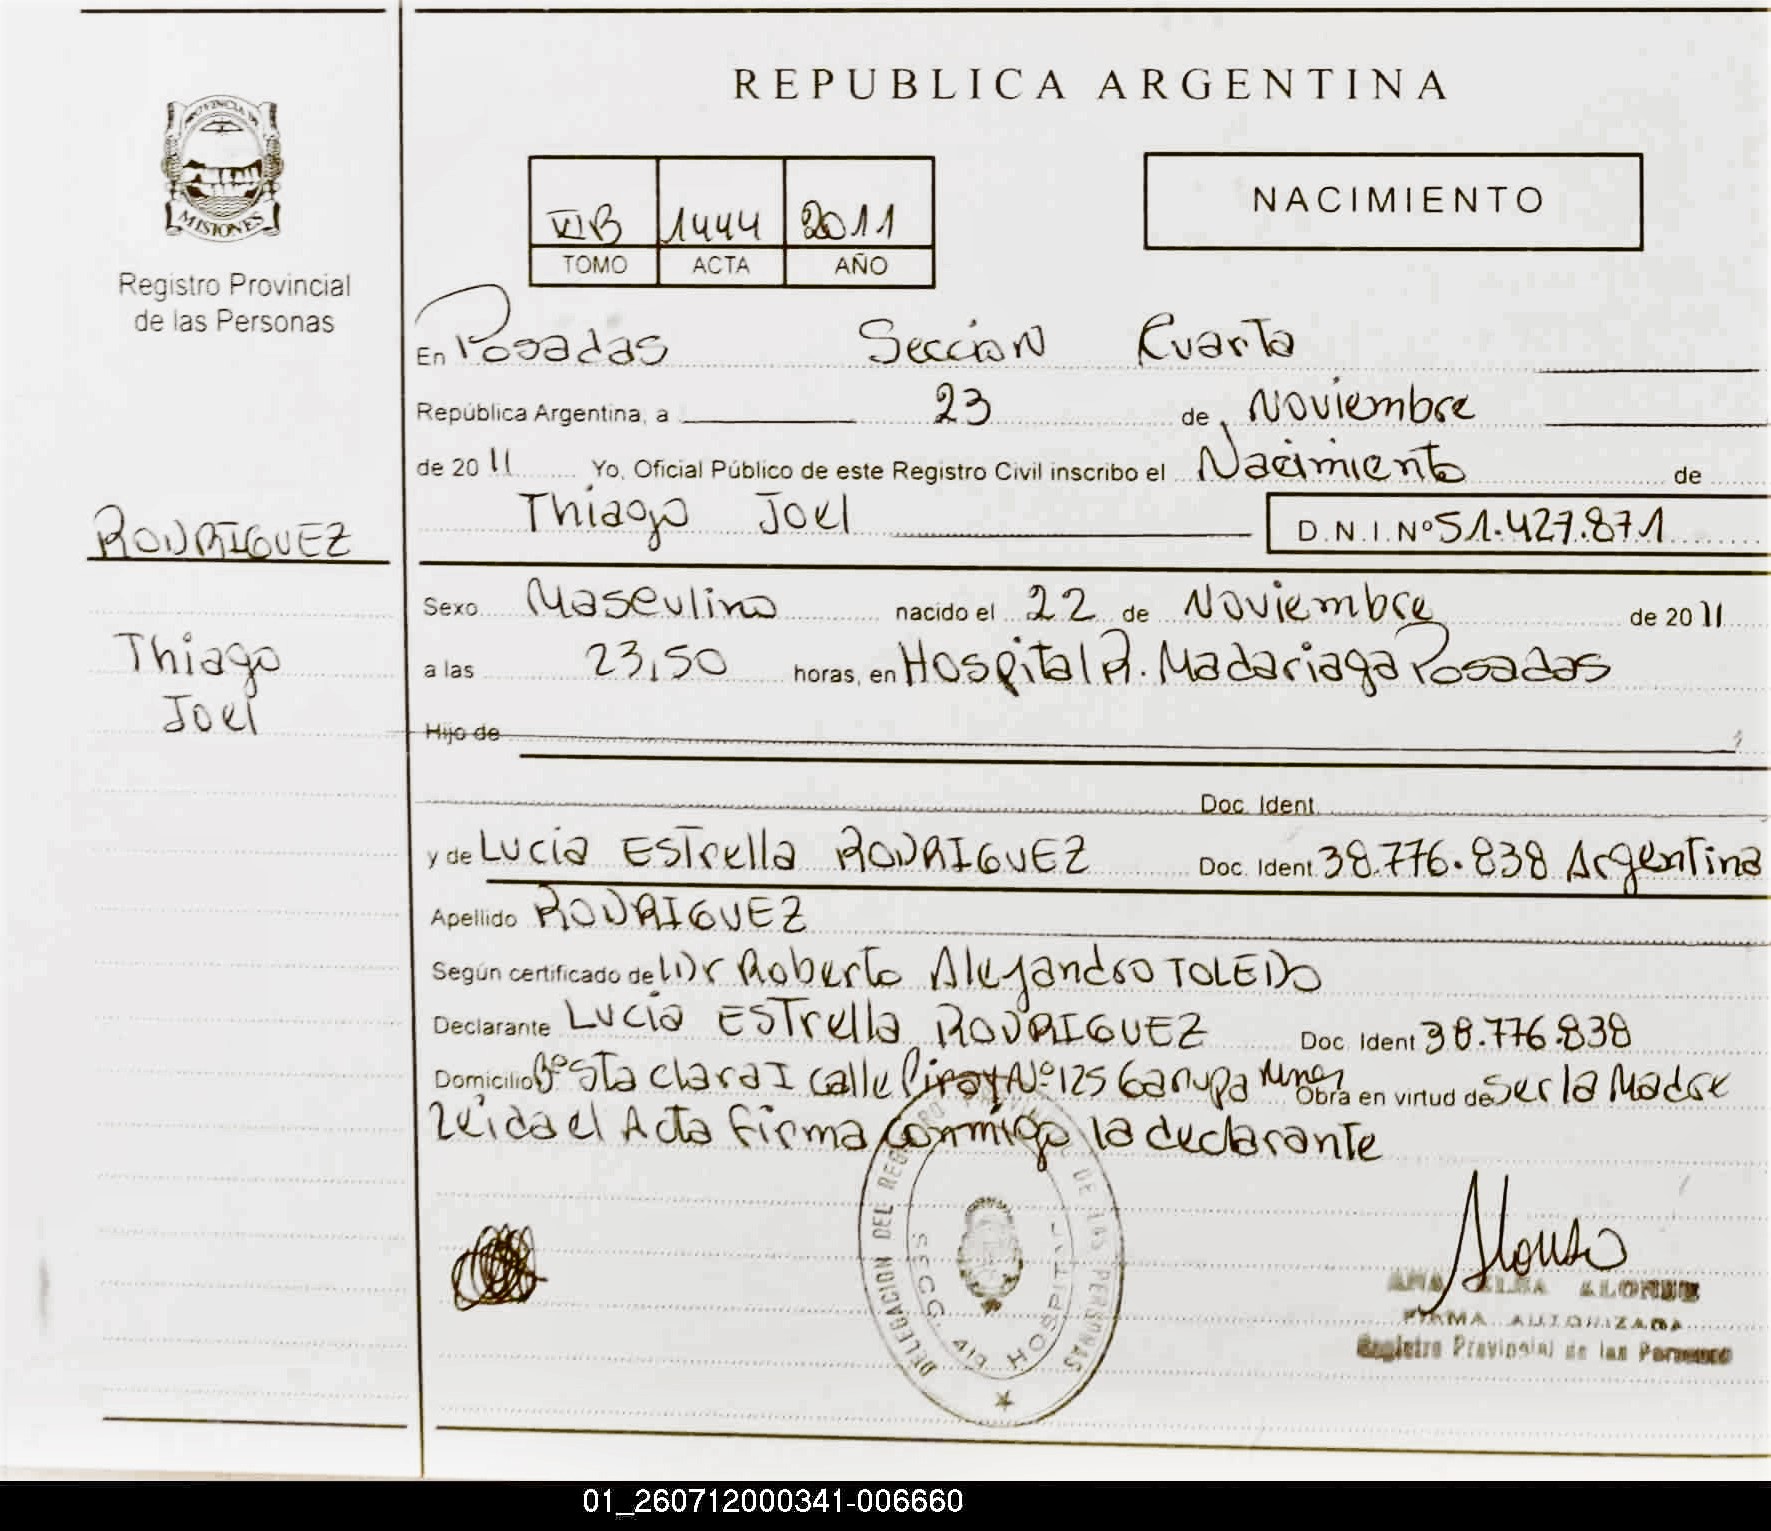 REPUBLICA ARGENTINA
PROVINCIA DE
MISIONES
Registro Provincial
de las Personas
VIB 1444 2011
TOMO ACTA AÑO
NACIMIENTO
En Posadas Seccion Cuarta
República Argentina, a 23 de Noviembre
de 2011 Yo, Oficial Público de este Registro Civil inscribo el Nacimiento de
Thiago Joel D.N.I.Nº 51.427.871
RODRIGUEZ
Thiago
Joel
Sexo Masculino nacido el 22 de Noviembre de 2011
a las 23,50 horas, en Hospital R. Madariaga Posadas
Hijo de
Doc. Ident.
y de Lucia Estrella RODRIGUEZ Doc. Ident. 38.776.838 Argentina
Apellido RODRIGUEZ
Según certificado de Dr Roberto Alejandro TOLEDO
Declarante Lucia Estrella RODRIGUEZ Doc. Ident 38.776.838
Domicilio Bº Sta Clara I calle Piray Nº 125 Garupa Mnes Obra en virtud de Ser la Madre
Leida el Acta firma conmigo la declarante
DELEGACION DEL REGISTRO PROVINCIAL DE LAS PERSONAS
SECC. 4ta HOSPITAL
Alonso
ANA ELBA ALONSO
FIRMA AUTORIZADA
Registro Provincial de las Personas
01_260712000341-006660